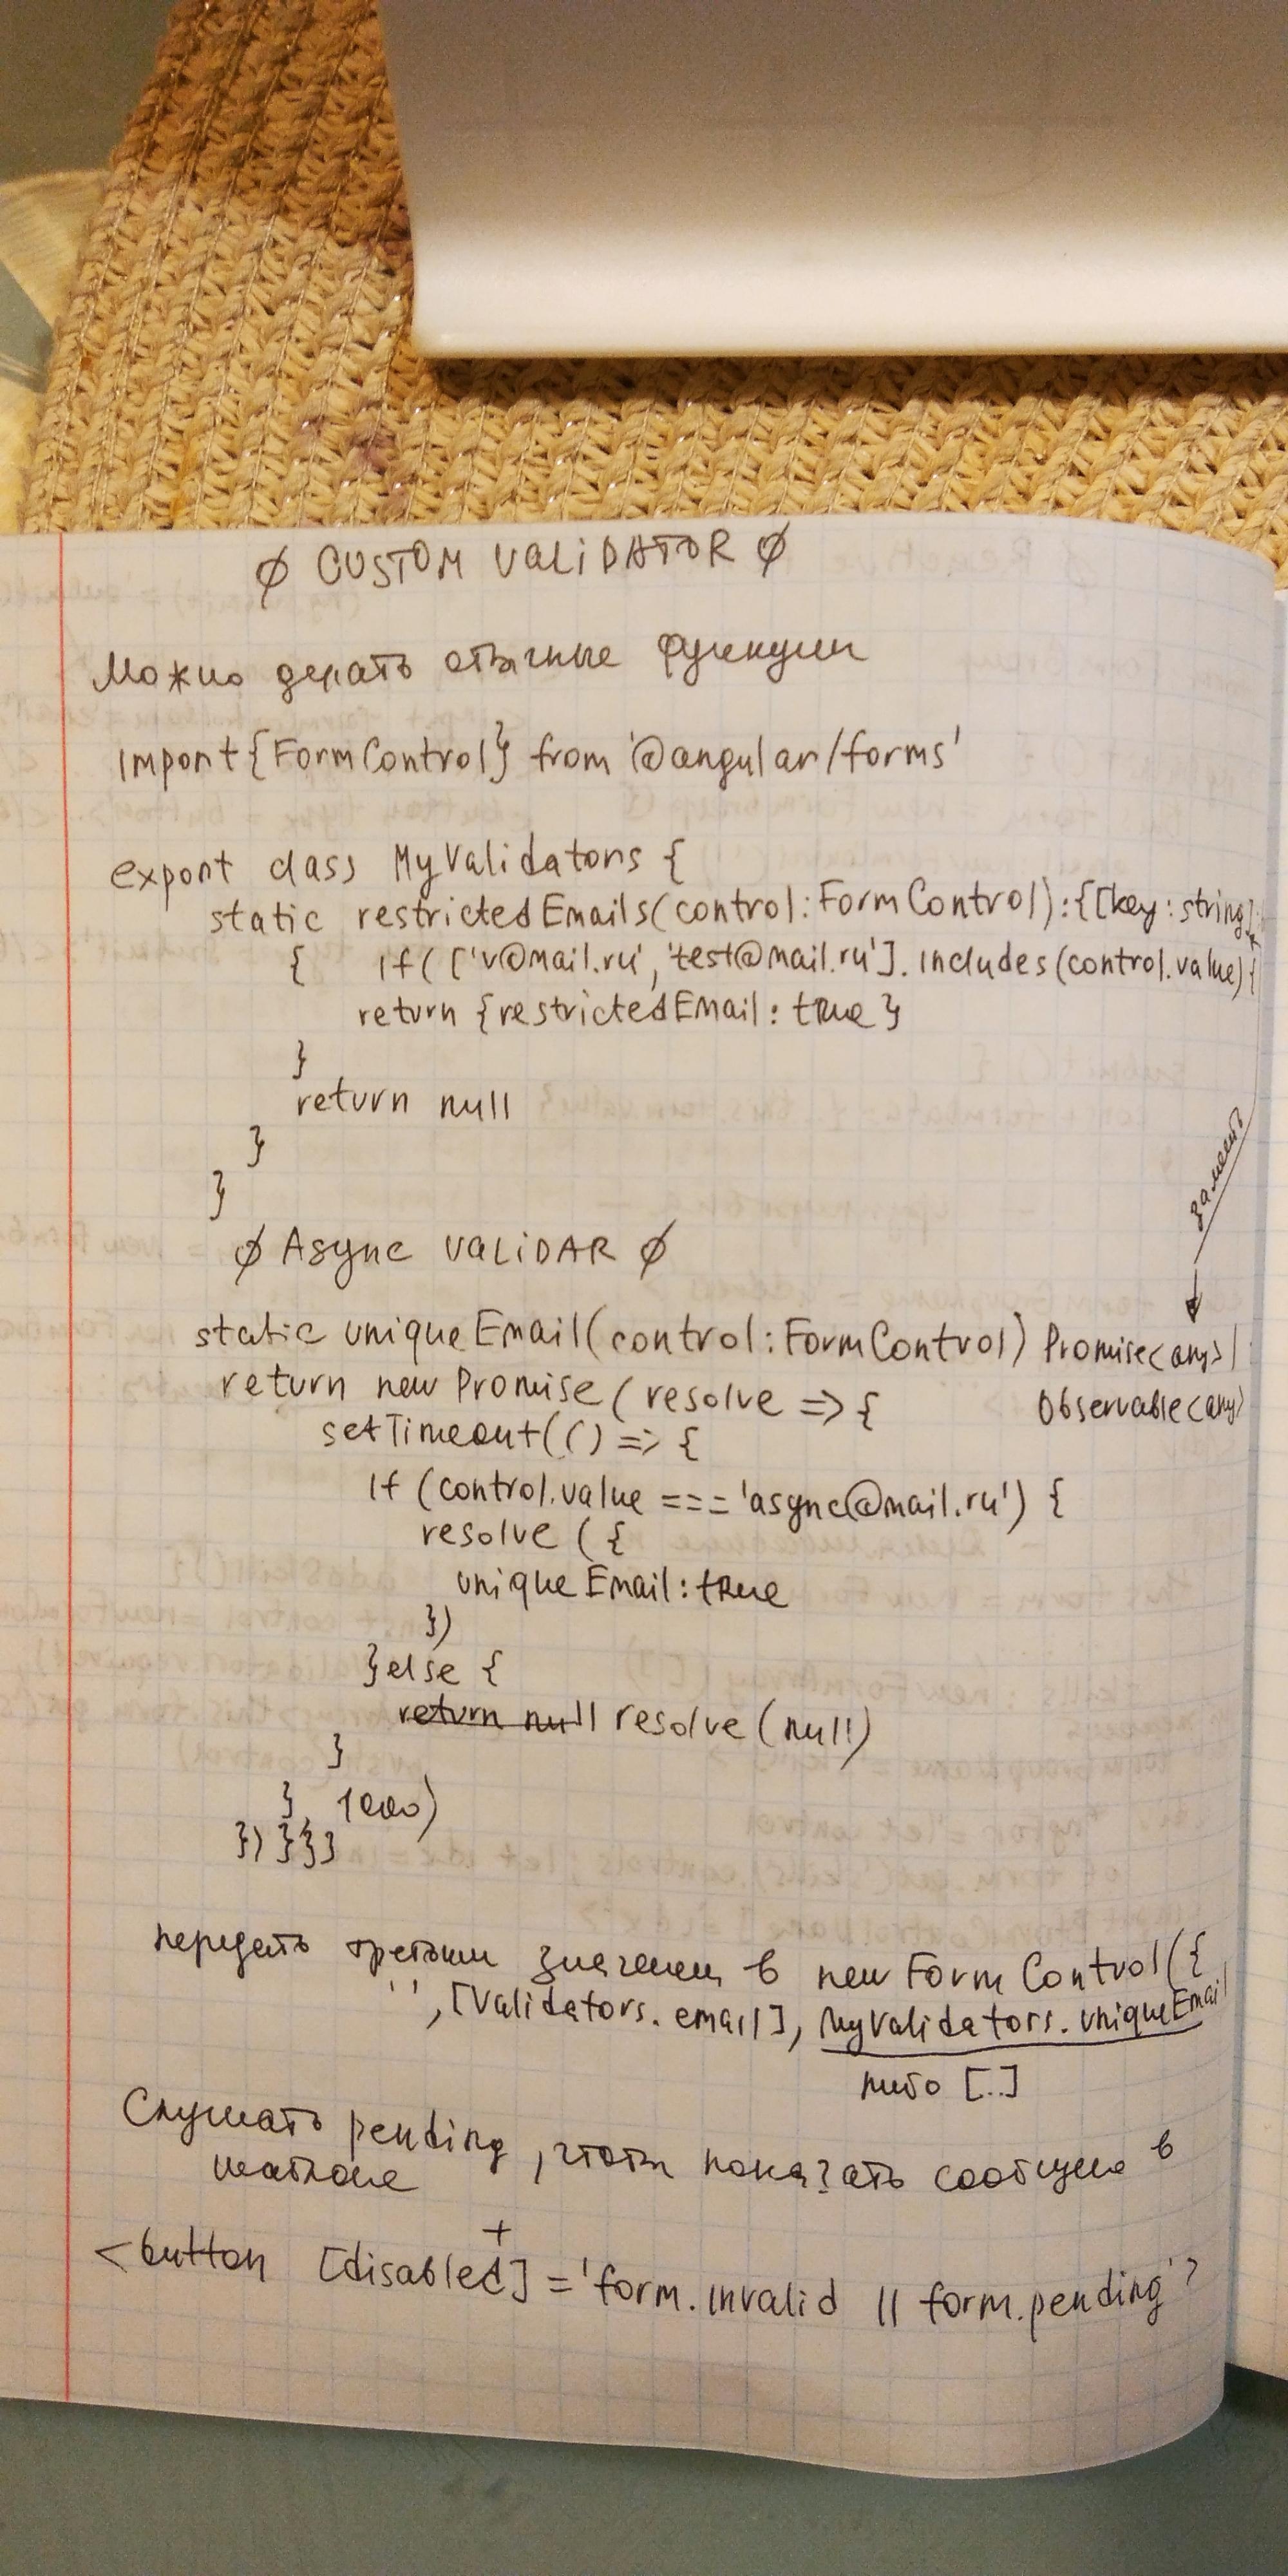 ∅ CUSTOM VALIDATOR ∅
Можно делать обычные функции
import {FormControl} from '@angular/forms'
export class MyValidators {
static restrictedEmails(control: FormControl): {[key: string]:
{ if (['v@mail.ru', 'test@mail.ru']. includes(control.value) {
return {restrictedEmail: true}
}
return null
}
}
∅ Async VALIDAR ∅
замент
static uniqueEmail(control: FormControl) Promise<any> |
return new Promise (resolve => { Observable<any>
setTimeout(() => {
if (control.value === 'async@mail.ru') {
resolve ({
uniqueEmail: true
})
}else {
return null resolve(null)
}
}, 1000)
}) }}}
передать третьим значением в new FormControl({
'', [Validators.email], MyValidators.uniqueEmail
либо [..]
Слушать pending, чтобы показать сообщение в
шаблоне
+
<button [disabled]='form.invalid || form.pending'>